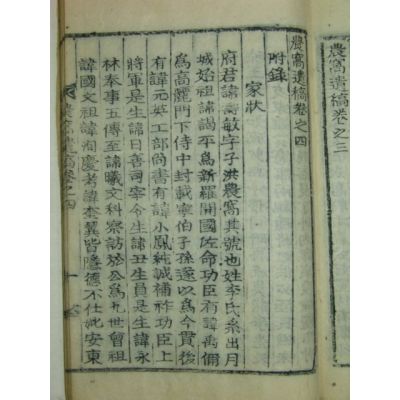 農窩遺稿卷之三
農窩遺稿卷之四
附錄
家狀
府君諱壽敏字子洪農窩其號也姓李氏系出月
城始祖諱謁平爲新羅開國佐命功臣有諱禹偁
爲高麗門下侍中封載寧伯子孫遂以爲今貫後
有諱元英工部尙書有諱小鳳純誠補祚功臣上
將軍是生諱日善司宰令生諱丑生員是生諱永
林奉事五傳至諱曦文科察訪於公爲九世曾祖
諱國文祖諱相慶考諱奎翼皆隱德不仕妣安東
農窩遺稿卷之四